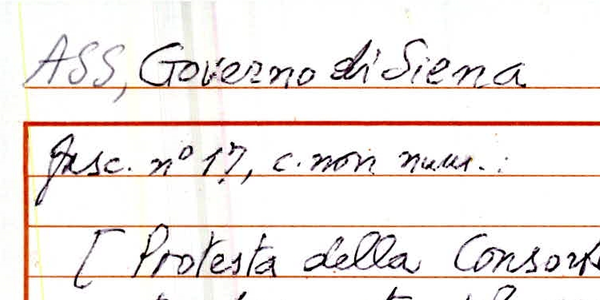 ASS, Governo di Siena
fasc. nº 17, c. non num.:
[ Protesta della Consort